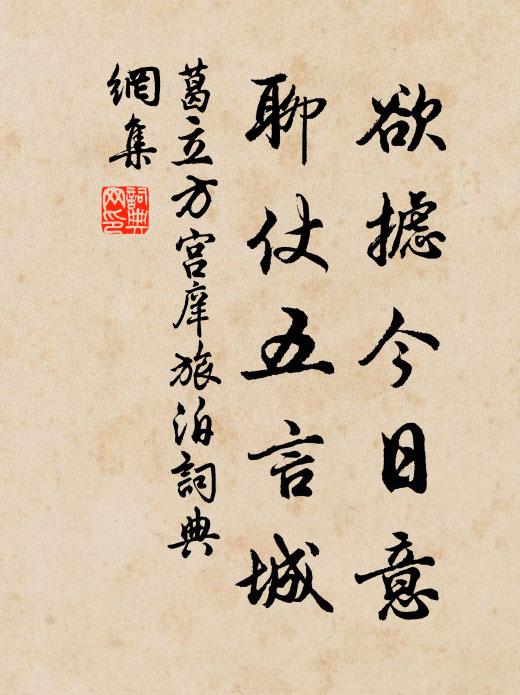 欲攄今日意
聊仗五言城
葛立方宫庠旅泊詞典
網集
詞典網印